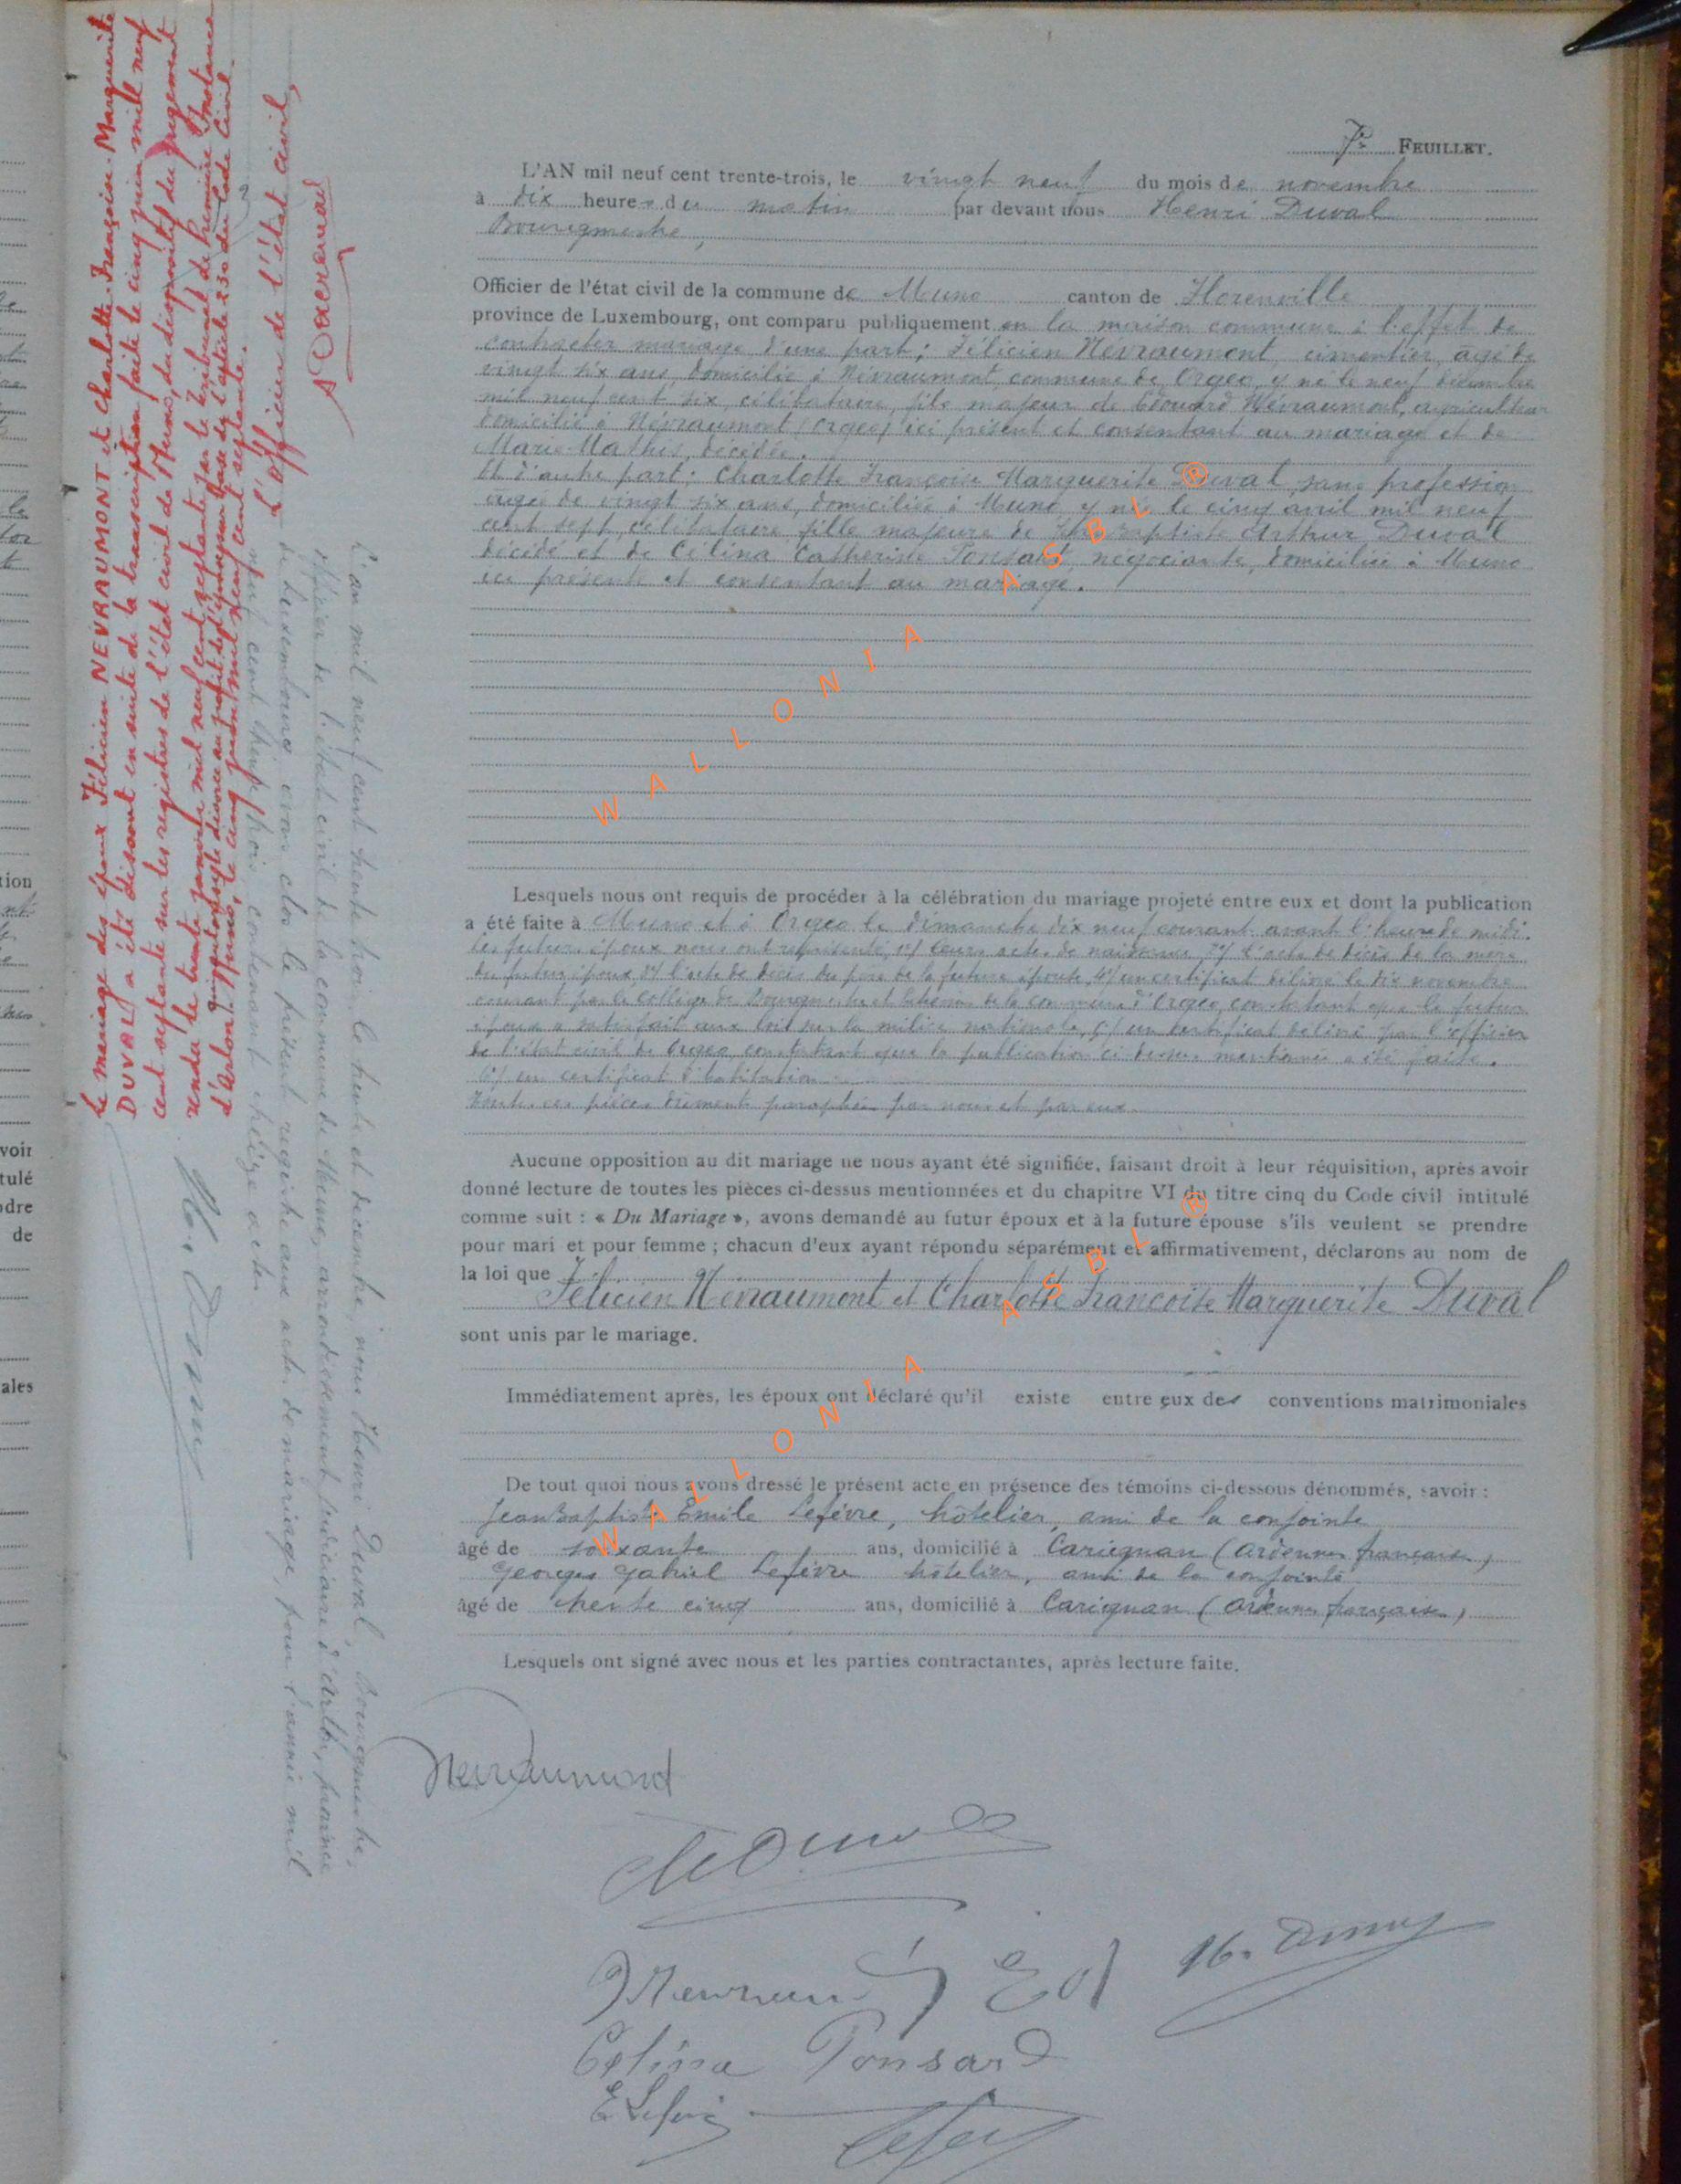 7e FEUILLET.
L'AN mil neuf cent trente-trois, le vingt neuf du mois de novembre
à dix heures du matin par devant nous Henri Duval
Bourgmestre,
Officier de l'état civil de la commune de Muno canton de Florenville
province de Luxembourg, ont comparu publiquement en la maison commune à l'effet de
contracter mariage d'une part; Félicien Névraumont, cimentier, âgé de
vingt six ans, domicilié à Névraumont commune de Orgeo, y né le neuf décembre
mil neuf cent six, célibataire, fils majeur de Edouard Névraumont, agriculteur
domicilié à Névraumont (Orgeo) ici présent et consentant au mariage et de
Marie Mathis, décédée.
Et d'autre part: Charlotte Françoise Marguerite Duval, sans profession
agée de vingt six ans, domiciliée à Muno, y née le cinq avril mil neuf
cent sept, célibataire, fille majeure de Arthur Duval
décédé et de Célina Catherine Ponsard, négociante, domiciliée à Muno
ici présente et consentant au mariage.
Lesquels nous ont requis de procéder à la célébration du mariage projeté entre eux et dont la publication
a été faite à Muno et à Orgeo le dimanche dix neuf courant avant l'heure de midi.
Les futurs époux nous ont représenté, 1°/ leurs actes de naissance, 2°/ l'acte de décès de la mère
du futur époux, 3°/ l'acte de décès du père de la future épouse, 4°/ un certificat délivré le dix novembre
courant par le Collège des Bourgmestre et Echevins de la commune d'Orgeo, constatant que le futur
époux a satisfait aux lois sur la milice nationale, 5°/ un certificat délivré par l'officier
de l'état civil de Orgeo, constatant que la publication ci-dessus mentionnée a été faite.
6°/ un certificat d'habitation.
Toutes ces pièces dûment paraphées par nous et par eux.
Aucune opposition au dit mariage ne nous ayant été signifiée, faisant droit à leur réquisition, après avoir
donné lecture de toutes les pièces ci-dessus mentionnées et du chapitre VI du titre cinq du Code civil intitulé
comme suit : « Du Mariage », avons demandé au futur époux et à la future épouse s'ils veulent se prendre
pour mari et pour femme ; chacun d'eux ayant répondu séparément et affirmativement, déclarons au nom de
la loi que
Félicien Névraumont et Charlotte Françoise Marguerite Duval
sont unis par le mariage.
Immédiatement après, les époux ont déclaré qu'il existe entre eux des conventions matrimoniales
De tout quoi nous avons dressé le présent acte en présence des témoins ci-dessous dénommés, savoir :
Jean Baptiste Emile Lefèvre, hôtelier, ami de la conjointe
âgé de soixante ans, domicilié à Carignan (Ardennes françaises)
Georges Gabriel Lefèvre hôtelier, ami de la conjointe
âgé de trente cinq ans, domicilié à Carignan (Ardennes françaises)
Lesquels ont signé avec nous et les parties contractantes, après lecture faite.
Nevraumond
Ch Duval
H. Duval
Célina Ponsard
E Lefèvre
Le mariage des époux Félicien NEVRAUMONT et Charlotte-Françoise-Marguerite
DUVAL a été dissout en suite de la transcription faite le cinq juin mil neuf
cent septante sur les registres de l'état civil de Muno, du dispositif du jugement
rendu le trente janvier mil neuf cent septante par le tribunal de Première Instance
d'Arlon qui autorisa le divorce au profit de l'époux sur base de l'article 230 du Code Civil.
Muno, le cinq juin mil neuf cent septante.
L'Officier de l'état civil,
L'an mil neuf cent trente trois, le trente et décembre, nous Henri Duval, bourgmestre,
officier de l'état civil de la commune de Muno, arrondissement judiciaire d'Arlon, province
de Luxembourg avons clos le présent registre aux actes de mariage, pour l'année mil
neuf cent trente trois contenant treize actes
H. Duval
WALLONIA ASBL ®
WALLONIA ASBL ®
tion
voir
tulé
ndre
de
ales